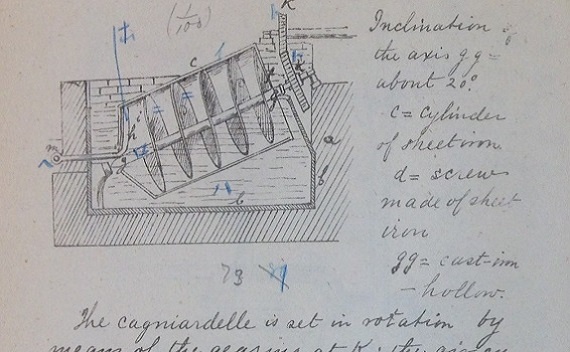 (1/100)
K
Inclination of
the axis gg =
about 20°.
c = cylinder
of sheet iron
d = screw
made of sheet
iron
gg = cast-iron
- hollow.
c
h
m
g
a
b
b
73
The cagniardelle is set in rotation by
means of the gearing at K; the